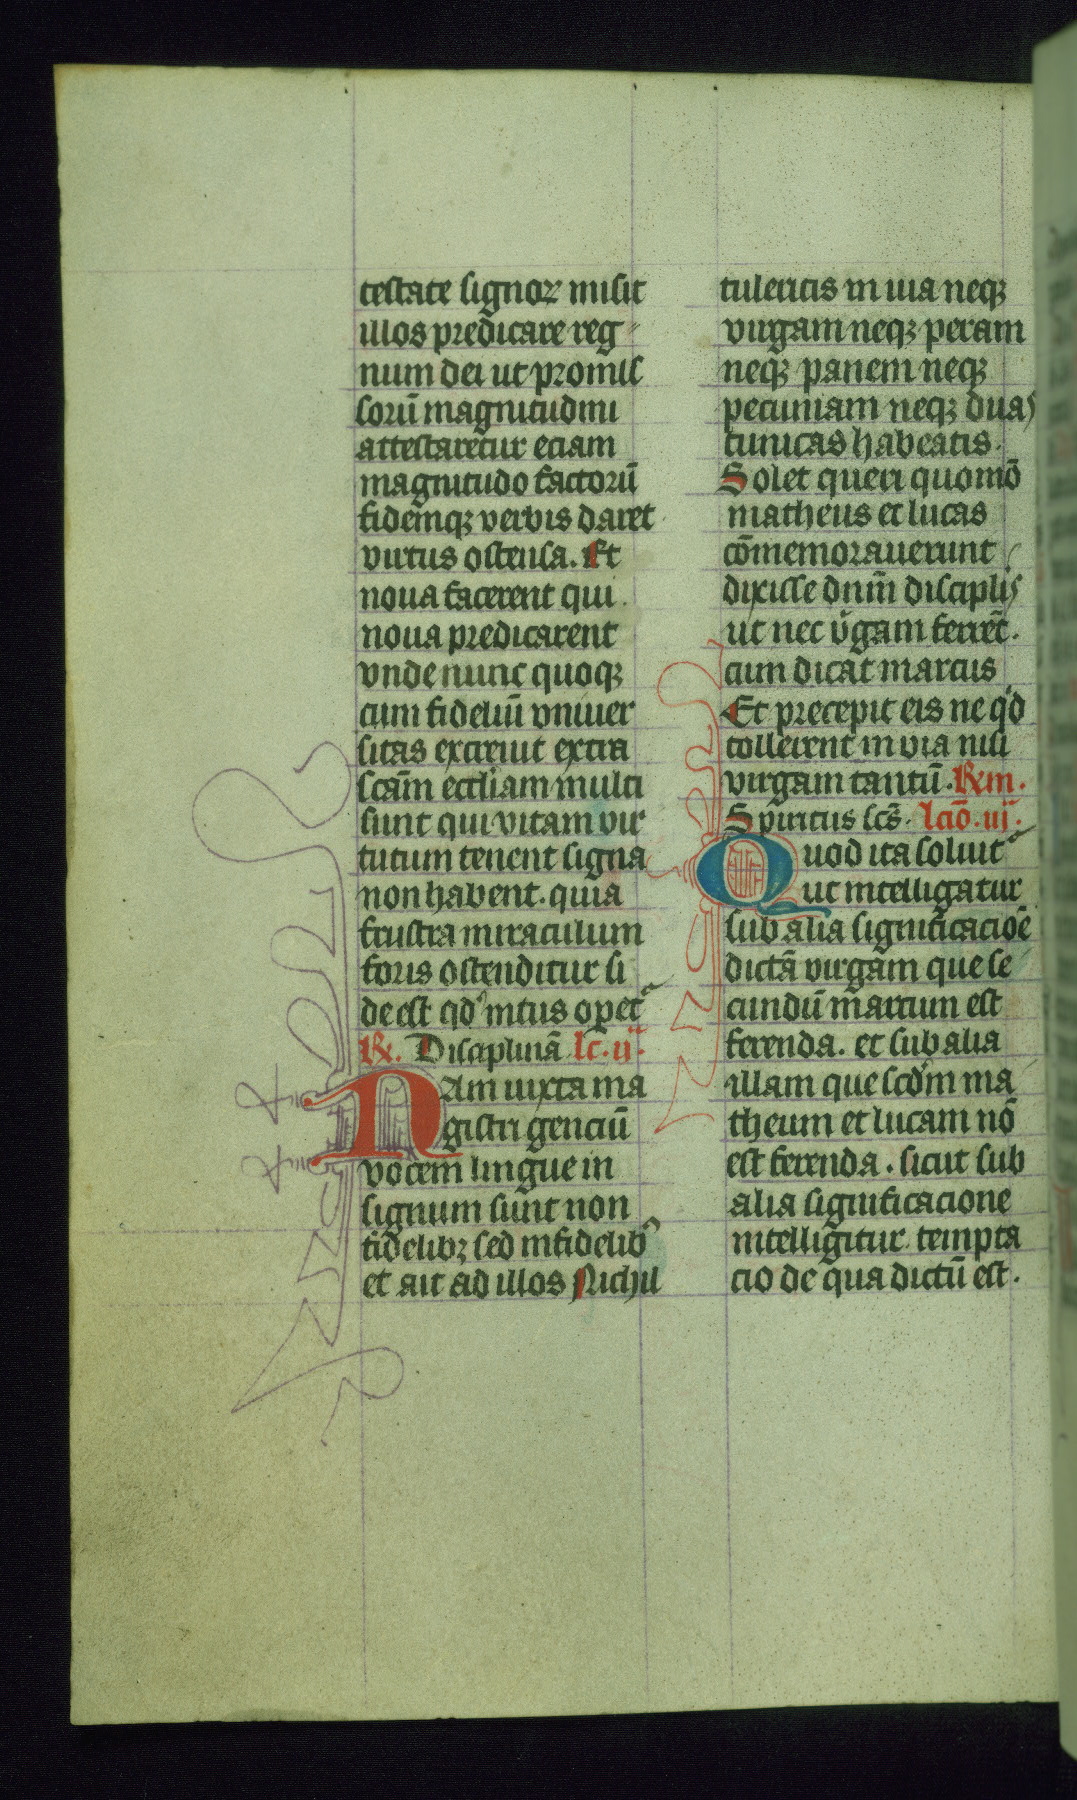 testate signoꝝ misit
illos predicare reg
num dei ut promis
sorū magnitudini
attestaretur eciam
magnitudo factorū
fidemqꝫ verbis daret
virtus ostensa. Et
noua facerent qui
noua predicarent
vnde nunc quoqꝫ
cum fideliū vniuer
sitas excreuit extra
scām eccliam multi
sunt qui vitam vir
tutum tenent signa
non habent. quia
frustra miraculum
foris ostenditur si
de est qd intus opet
R. Disciplinā lc. ii.
Nam iuxta ma
gistri genciū
vocem lingue in
signum sunt non
fidelibꝫ sed infidelibꝰ
et ait ad illos Nichil
tuleritis in uia neqꝫ
virgam neqꝫ peram
neqꝫ panem neqꝫ
pecuniam neqꝫ duas
tunicas habeatis.
Solet queri quomō
matheus et lucas
cōmemorauerunt
dixisse dnm̄ discipl̄is
ut nec v̄gam ferrēt.
cum dicat marcus
Et precepit eis ne qd
tollerent in via nisi
virgam tantū. Rm.
Spiritus scs̄. lcio. iii.
Quod ita soluit
ut intelligatur
sub alia significacioē
dictā virgam que se
cundū marcum est
ferenda. et sub alia
illam que scdm ma
theum et lucam nō
est ferenda. sicut sub
alia significacione
intelligitur tempta
cio de qua dictū est.